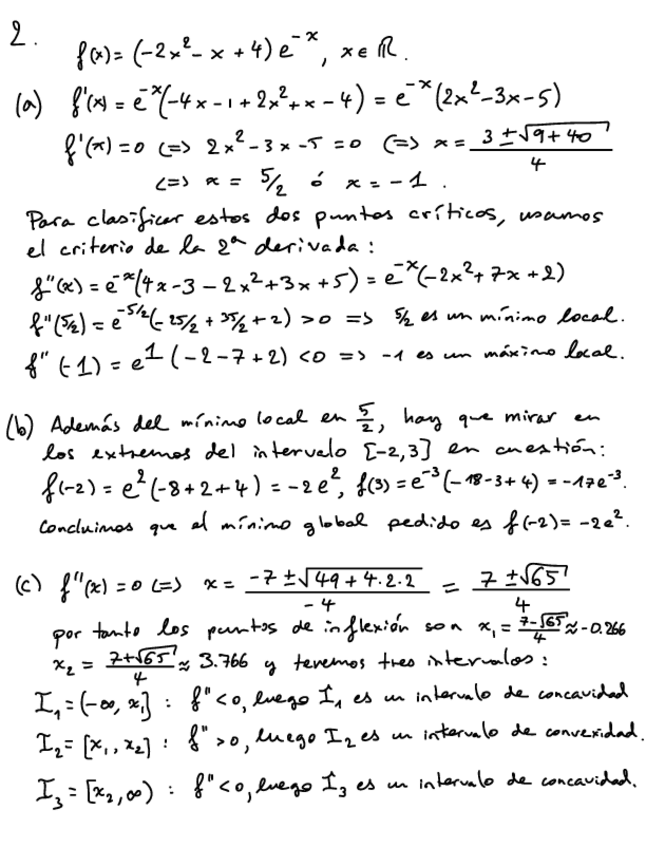 2.
f(x) = (-2x² - x + 4) e^{-x}, x ∈ ℝ.
(a) f'(x) = e^{-x}(-4x - 1 + 2x² + x - 4) = e^{-x}(2x² - 3x - 5)
f'(x) = 0 <=> 2x² - 3x - 5 = 0 <=> x = (3 ± √(9 + 40))/4
<=> x = 5/2 ó x = -1.
Para clasificar estos dos puntos críticos, usamos
el criterio de la 2ª derivada:
f''(x) = e^{-x}(4x - 3 - 2x² + 3x + 5) = e^{-x}(-2x² + 7x + 2)
f''(5/2) = e^{-5/2}(-25/2 + 35/2 + 2) > 0 => 5/2 es un mínimo local.
f''(-1) = e^1 (-2 - 7 + 2) < 0 => -1 es un máximo local.
(b) Además del mínimo local en 5/2, hay que mirar en
los extremos del intervalo [-2,3] en cuestión:
f(-2) = e²(-8 + 2 + 4) = -2e², f(3) = e^{-3}(-18 - 3 + 4) = -17e^{-3}.
Concluimos que el mínimo global pedido es f(-2) = -2e².
(c) f''(x) = 0 <=> x = (-7 ± √(49 + 4·2·2))/(-4) = (7 ± √65)/4
por tanto los puntos de inflexión son x₁ = (7-√65)/4 ≈ -0.266
x₂ = (7+√65)/4 ≈ 3.766 y tenemos tres intervalos:
I₁ = (-∞, x₁] : f'' < 0, luego I₁ es un intervalo de concavidad
I₂ = [x₁, x₂] : f'' > 0, luego I₂ es un intervalo de convexidad.
I₃ = [x₂, ∞) : f'' < 0, luego I₃ es un intervalo de concavidad.